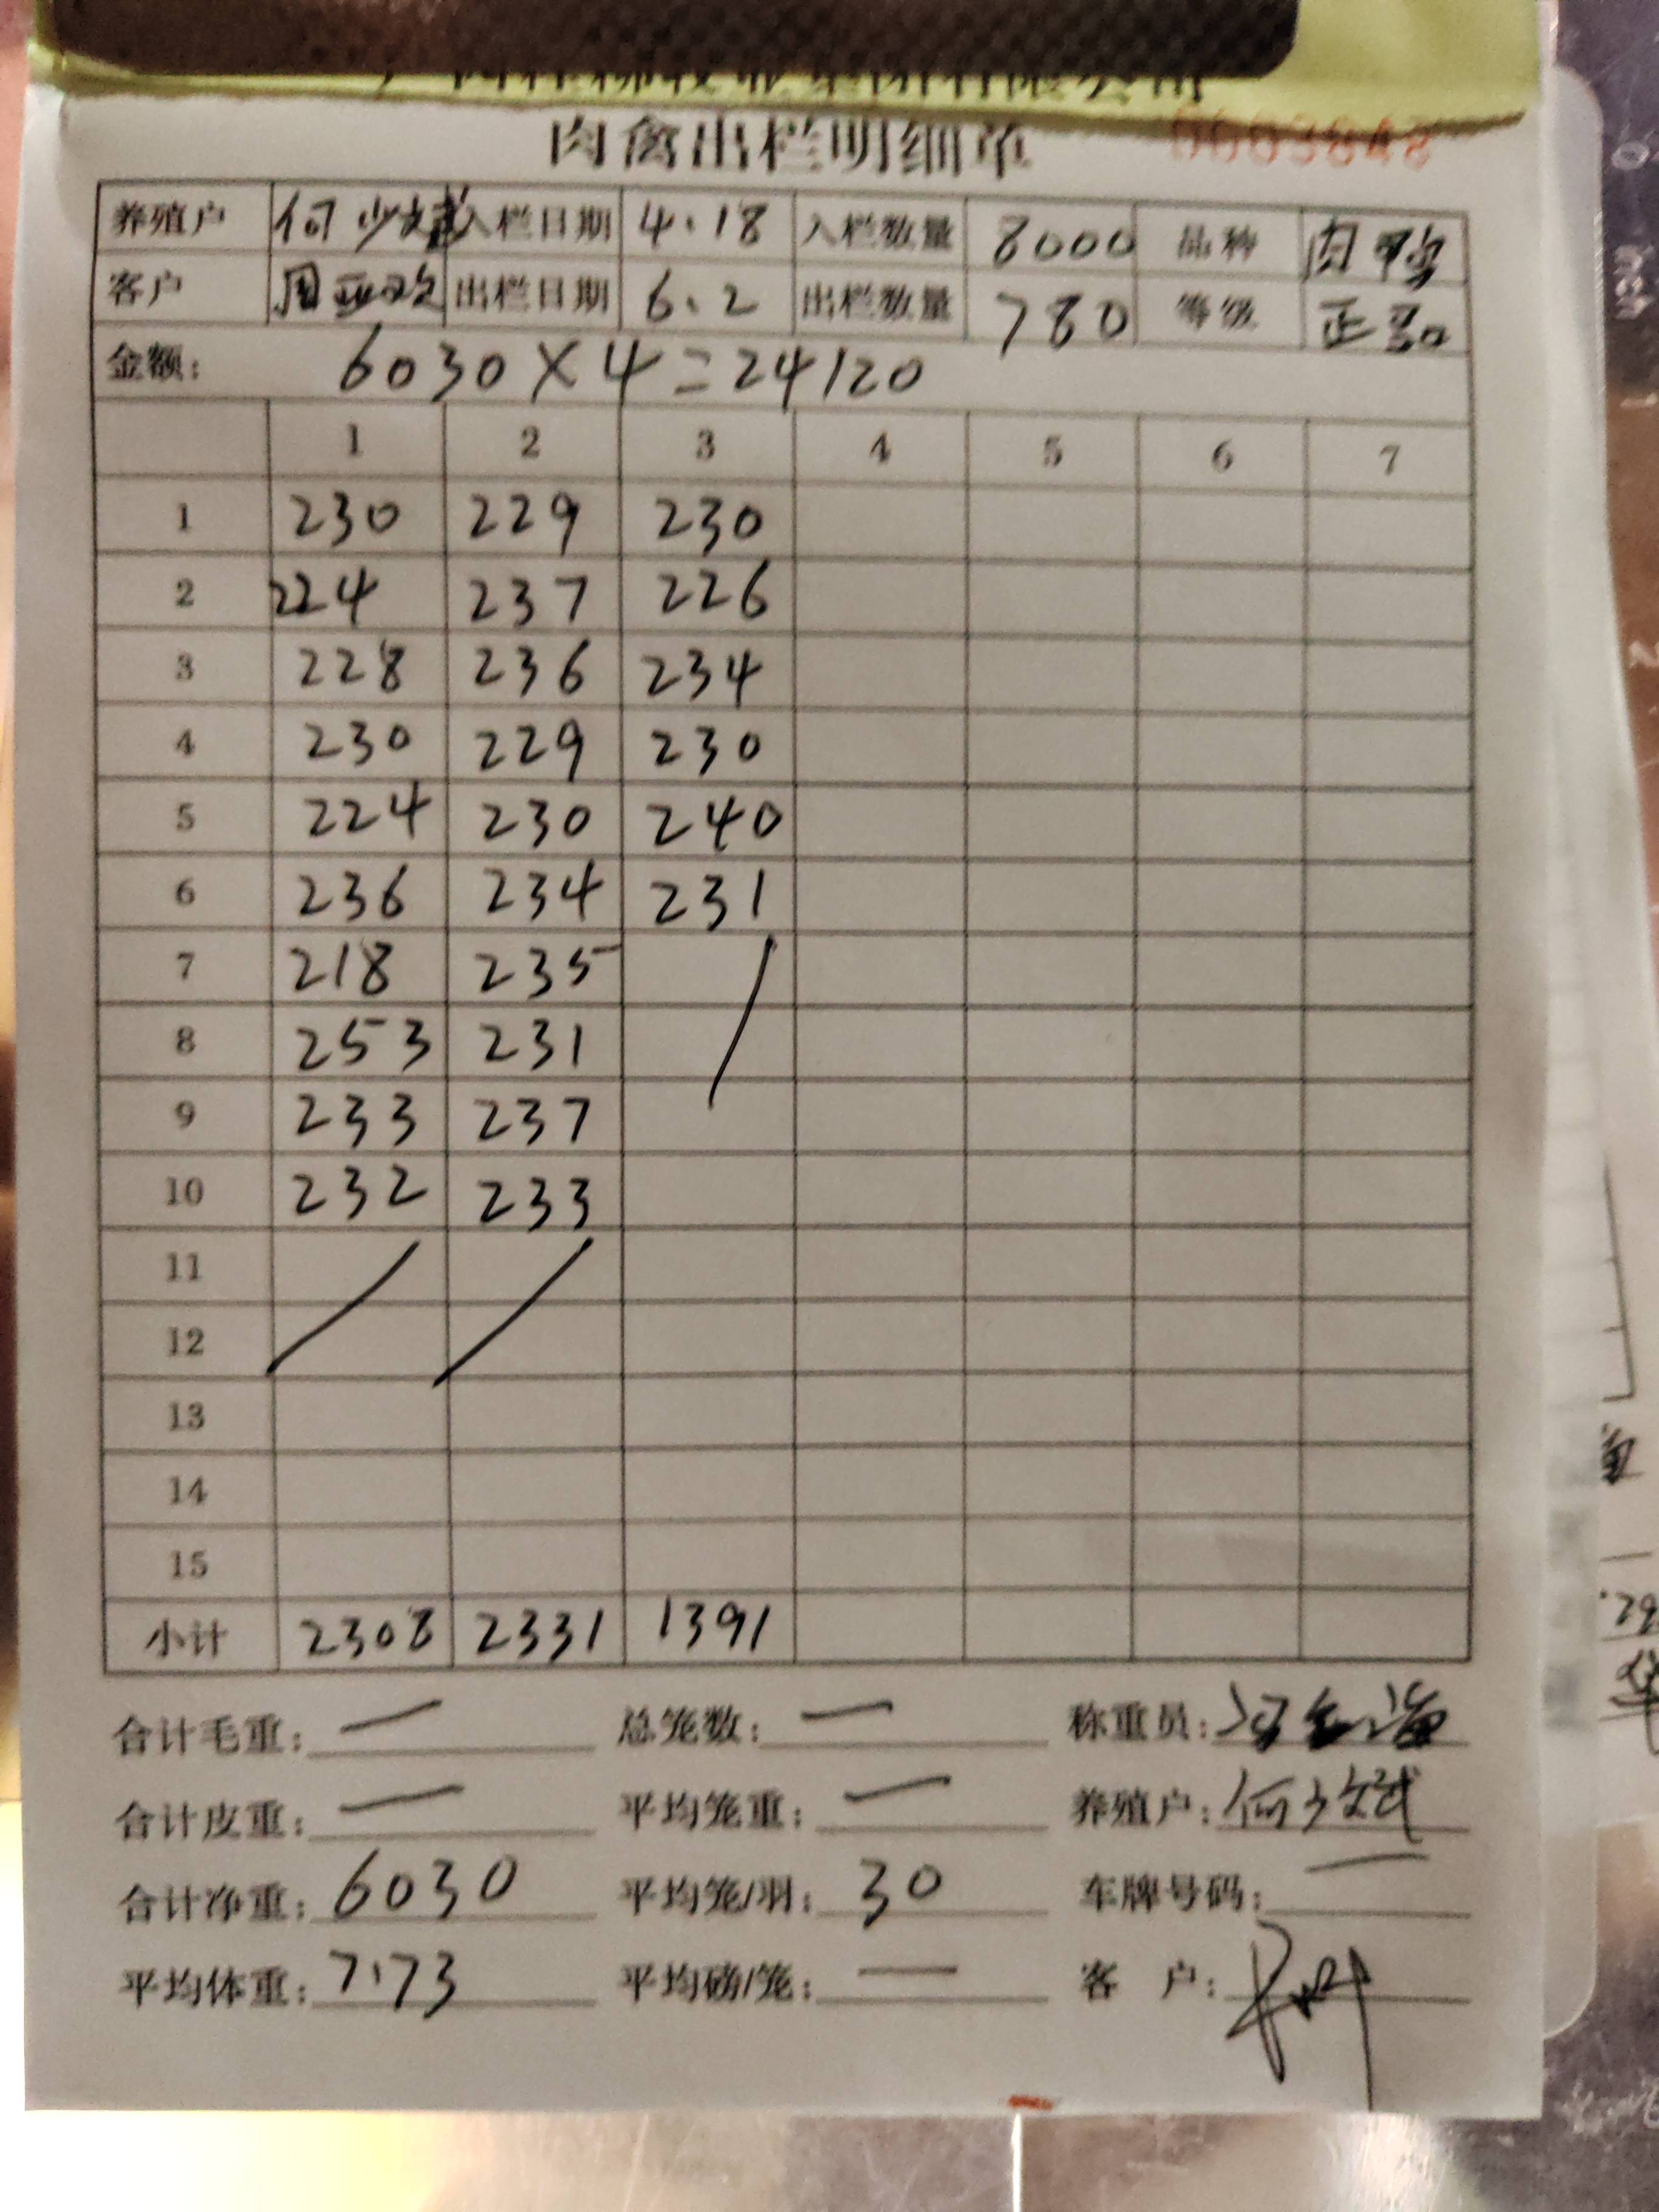 肉禽出栏明细单 0003848
养殖户 何少斌 入栏日期 4.18 入栏数量 8000 品种 肉鸭
客户 出栏日期 6.2 出栏数量 780 等级 正品
金额: 6030×4=24120
1 2 3 4 5 6 7
1 230 229 230
2 224 237 226
3 228 236 234
4 230 229 230
5 224 230 240
6 236 234 231
7 218 235
8 253 231
9 233 237
10 232 233
11
12
13
14
15
小计 2308 2331 1391
合计毛重: 一 总笼数: 一 称重员:
合计皮重: 一 平均笼重: 一 养殖户: 何少斌
合计净重: 6030 平均笼/羽: 30 车牌号码: 一
平均体重: 7.73 平均磅/笼: 一 客 户: